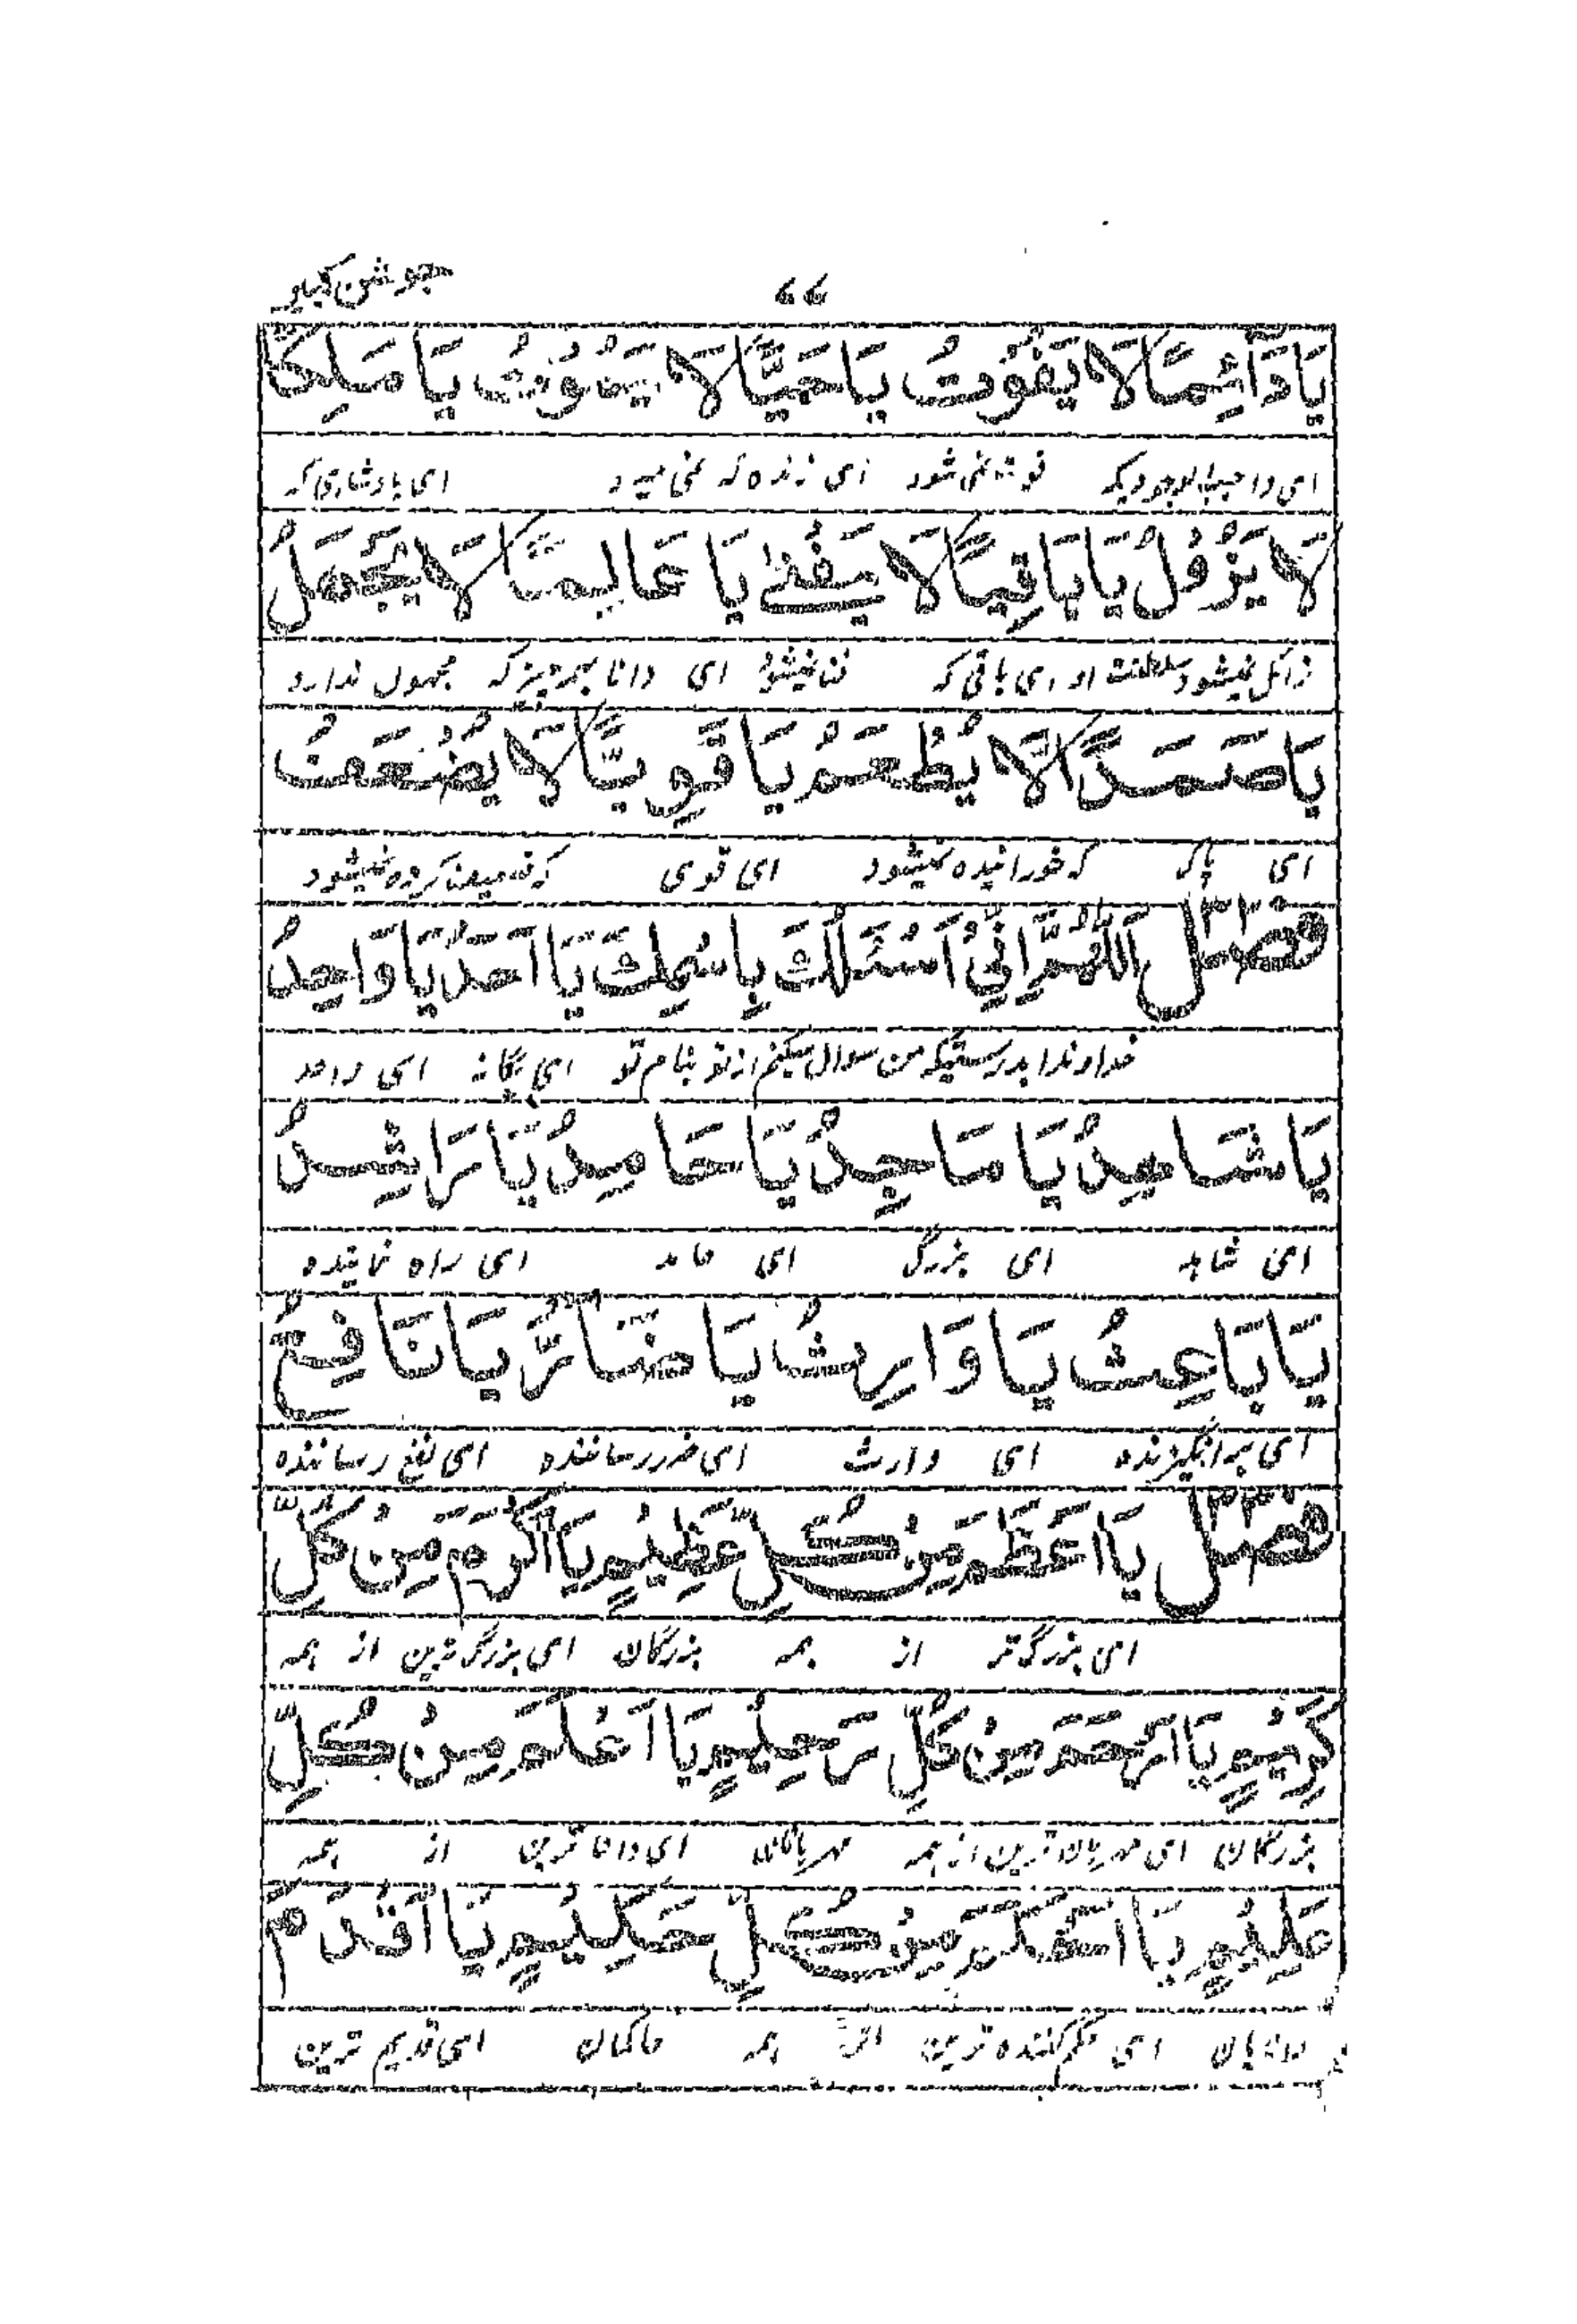 جوشن کبیر
۶۶
يَا دَآئِمًا لَا يَفُوْتُ يَا حَيًّا لَا يَمُوْتُ يَا مَلِكًا
ای واجب الوجودیکه فوت نمی شود ای زنده که نمی میرد ای پادشاهی که
لَا يَزُوْلُ يَا بَاقِيًا لَا يَفْنٰى يَا عَالِمًا لَا يَجْهَلُ
زائل نمیشود سلطنت او ای باقی که فنا نمیشود ای دانا بهر چیز که مجهول ندارد
يَا صَمَدًا لَّا يُطْعَمُ يَا قَوِيًّا لَا يَضْعَفُ
ای پاک که خورانیده نمیشود ای قوی که ضعیف کرده نمیشود
فصل اَللّٰهُمَّ اِنِّيْ اَسْئَلُكَ بِاسْمِكَ يَا اَحَدُ يَا وَاحِدُ
خداوندا بدرستیکه من سوال میکنم از تو بنام تو ای یگانه ای واحد
يَا شَاهِدُ يَا مَاجِدُ يَا حَامِدُ يَا رَاشِدُ
ای شاهد ای بزرگ ای حامد ای راه نماینده
يَا بَاعِثُ يَا وَارِثُ يَا ضَارُّ يَا نَافِعُ
ای برانگیزنده ای وارث ای ضرر رساننده ای نفع رساننده
فصل يَا اَعْظَمَ مِنْ كُلِّ عَظِيْمٍ يَا اَكْرَمَ مِنْ كُلِّ
ای بزرگ تر از همه بزرگان ای بزرگ ترین از همه
كَرِيْمٍ يَا اَرْحَمَ مِنْ كُلِّ رَحِيْمٍ يَا اَعْلَمَ مِنْ كُلِّ
بزرگان ای مهربان ترین از همه مهربانان ای دانا ترین از همه
عَلِيْمٍ يَا اَحْكَمَ مِنْ كُلِّ حَكِيْمٍ يَا اَقْدَمَ
دانایان ای حکم کننده ترین از همه حاکمان ای قدیم ترین